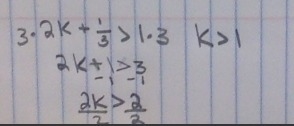 3·2K + 1/3 > 1·3 K > 1
2K + 1 > 3
-1 -1
2K/2 > 2/2